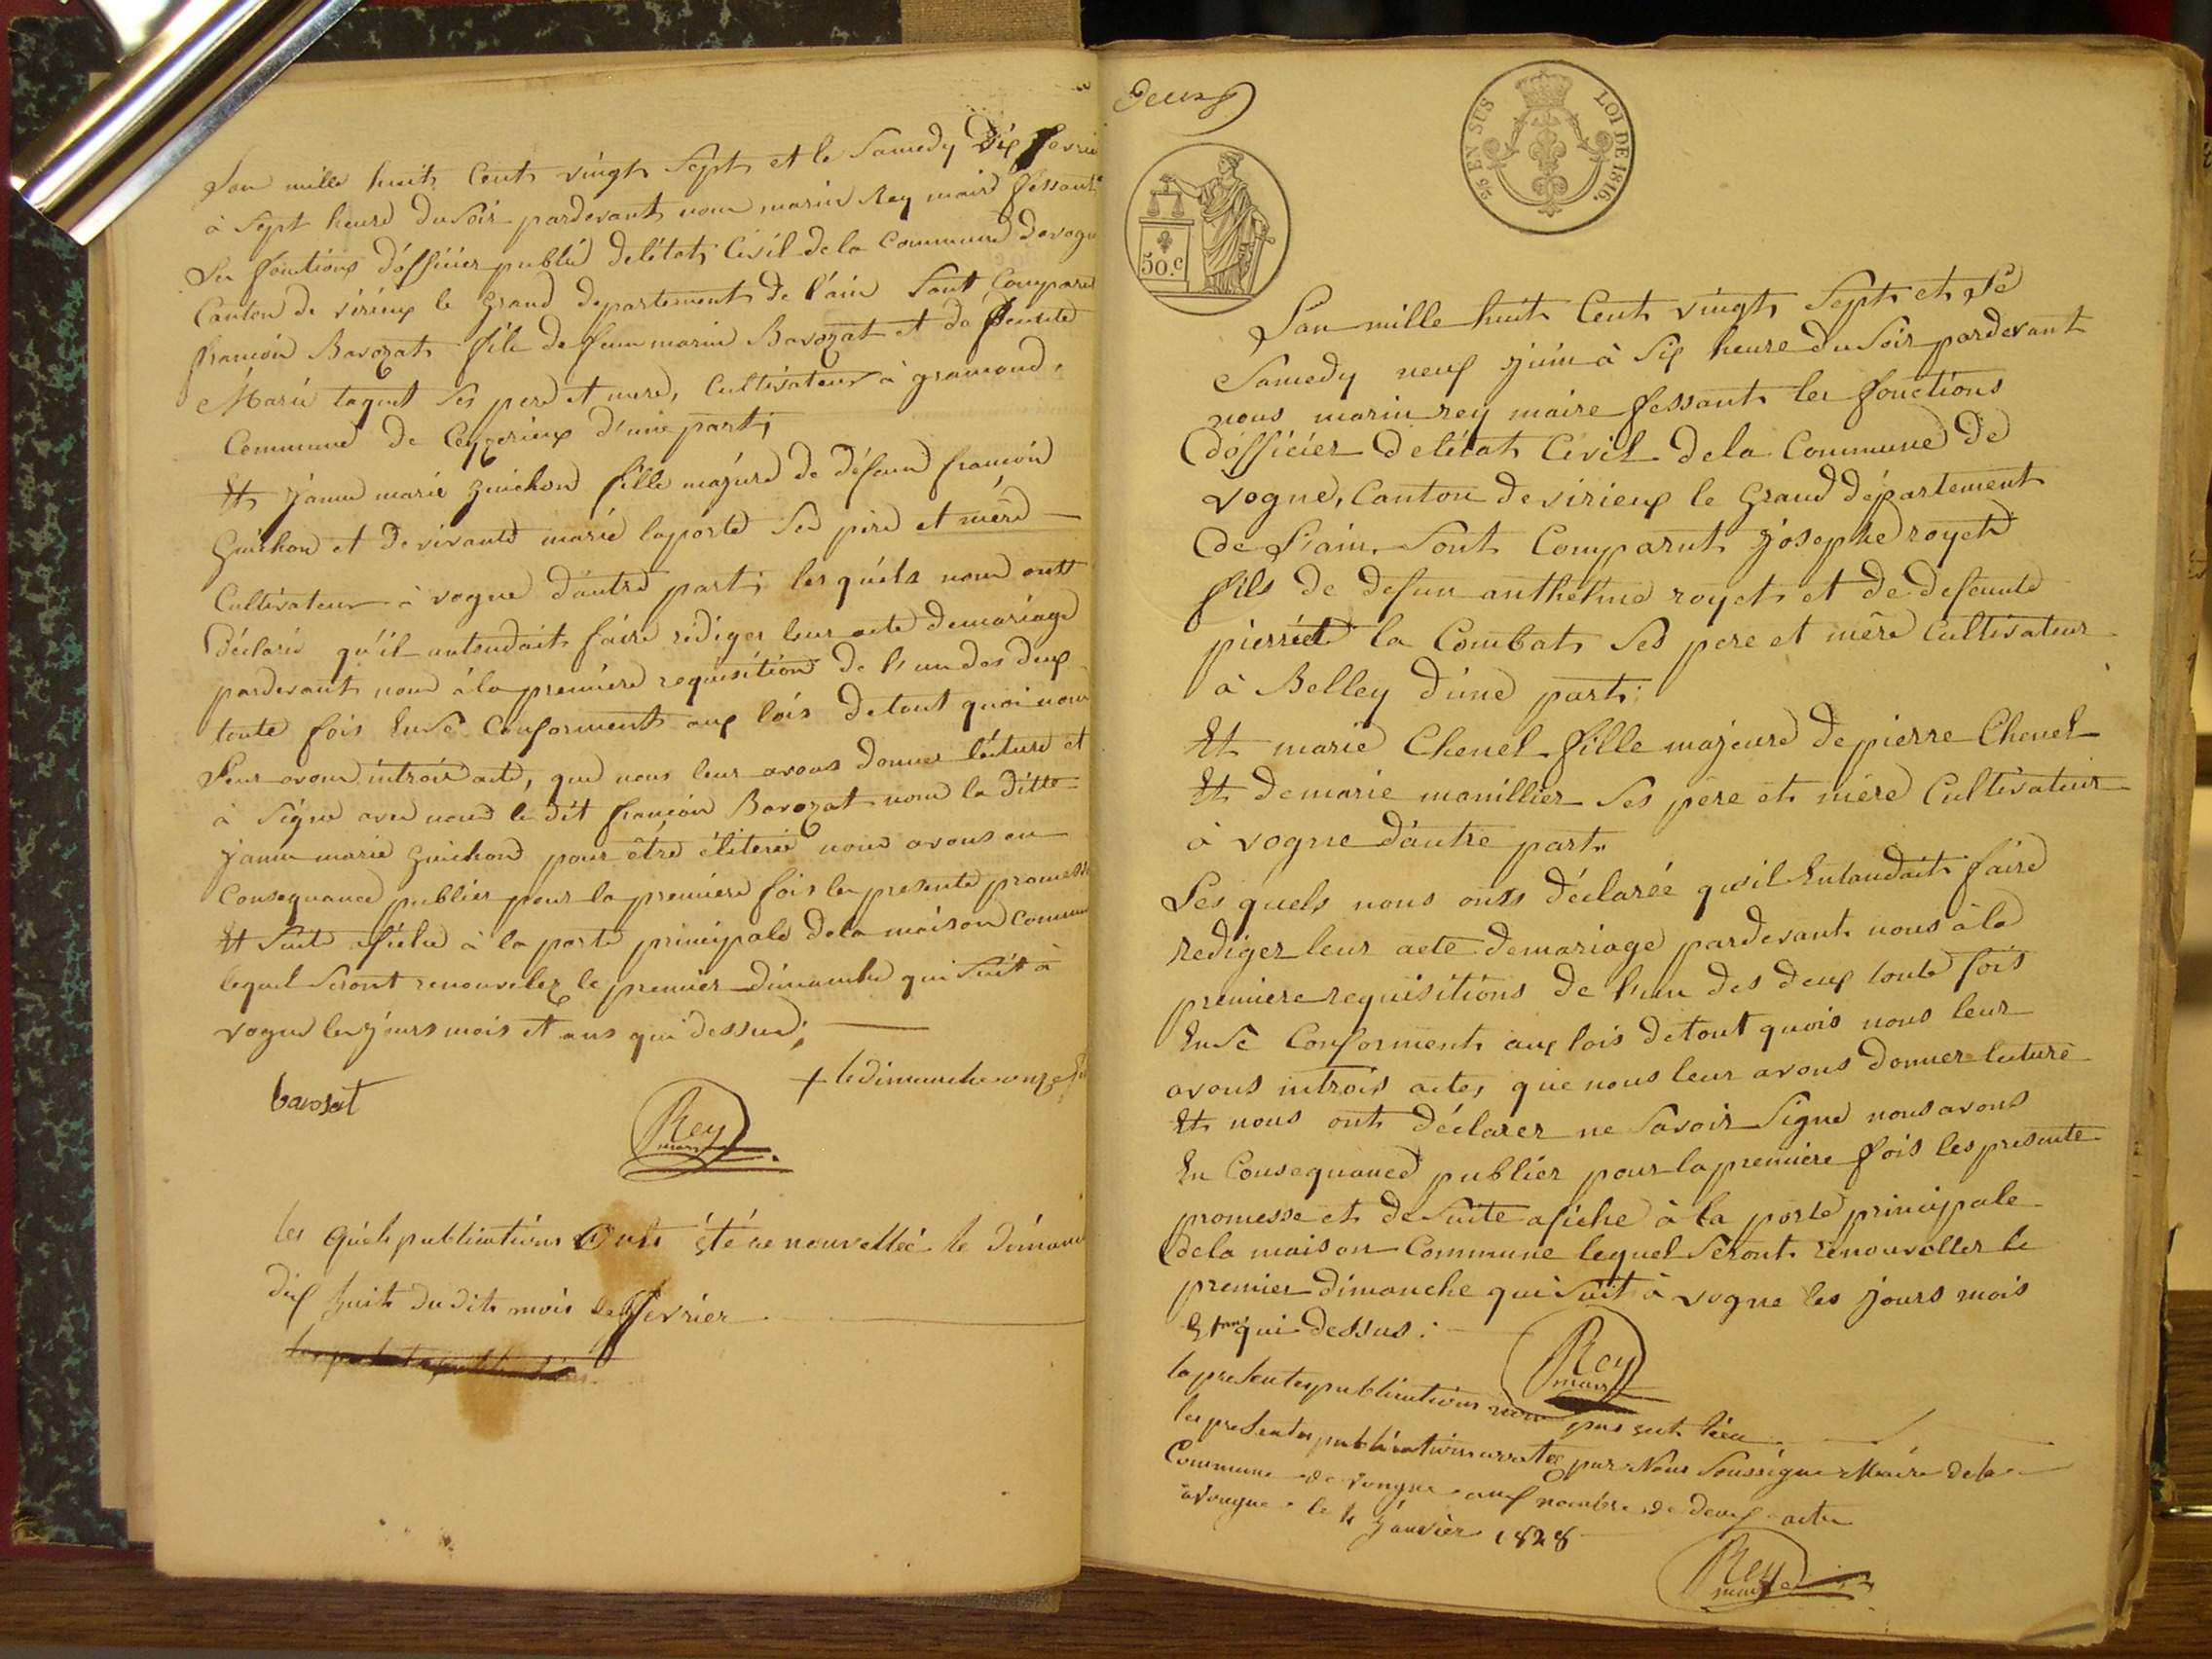 Lan mille huit Cent vingt Sept et le Samedy Dix fevrie
à Sept heure du Soir pardevant nous marin Rey maire fessant
Les fonctions d'officier publié de l'état Civil de la Commune de vogn
Canton de virieux le Grand departement de l'ain Sont Comparu
françois Bavozat fils de feu marin Bavozat et de feunte
Marie taquet Ses pere et mere, Cultivateur à gramond,
Commune de Ceyzerieux d'une part;
Et janne marie guichon fille majure de défunt françois
Guichon et de vivante marie laporte Ses père et mère
Cultivateur à vogne d'autre part; les quels nous ont
Déclaré qu'il entendait faire rédiger leur acte de mariage
pardevant nous à la première requisition de l'un des deux
toute fois En Se Conforment aux lois de tout quoi nous
Leur avons introis acte, que nous leur avons donner lécture et
à Signé avec nous le dit françois Bavozat nom la ditte
janne marie guichon pour être élitérée nous avons en
Consequance publier pour la première fois les presente promesse
Et Suite afiche à la porte principale de la maison Commun
lequel Seront renouvelez le premier dimanche qui Suit à
vogne les jours mois et ans qui dessus;
+ le dimanche onze
bavosat
Rey
maire
les quels publications Ont été renouvellée le diman
dix huit du dit mois de fevrier
Deux
5/10 EN SUS
LOI DE 1816.
50.c
Lan mille huit Cent vingt Sept et Le
Samedy neuf juin à Six heure du Soir pardevant
nous marin rey maire fessant les fonctions
d'officier de l'état Civil de la Commune de
vogne, Canton de virieux le Grand département
de L'ain, Sont Comparut josephe royet
fils de defun anthelme royet et de defeunte
pierrette la Combat Ses pere et mère Cultivateur
à Belley d'une part;
Et marie Chenel fille majeure de pierre Chenel
Et de marie monillier Ses père et mère Cultivateur
à vogne d'autre part.
Les quels nous onts déclarée qu'il Entandait faire
rediger leur acte de mariage pardevant nous à la
premiere requisitions de l'un des deux toute fois
En Se Conforment aux lois de tout quois nous leur
avons introis acte, que nous leur avons donner lecture
Et nous ont déclarer ne Savoir Signe nous avons
En Consequance publier pour la premiere fois les presente
promesse et de Suite afiche à la porte principale
de la maison Commune lequel Seront renouveller le
premier dimanche qui Suit à vogne les jours mois
Et an qui dessus:
Rey
maire
la presentes publications non pas eut lieu
les presentes publications arrêtée par Nous Soussigne Maire de la
Commune de vongne aux nombre de deux acte
à vongne le 4 janvier 1828
Rey
maire